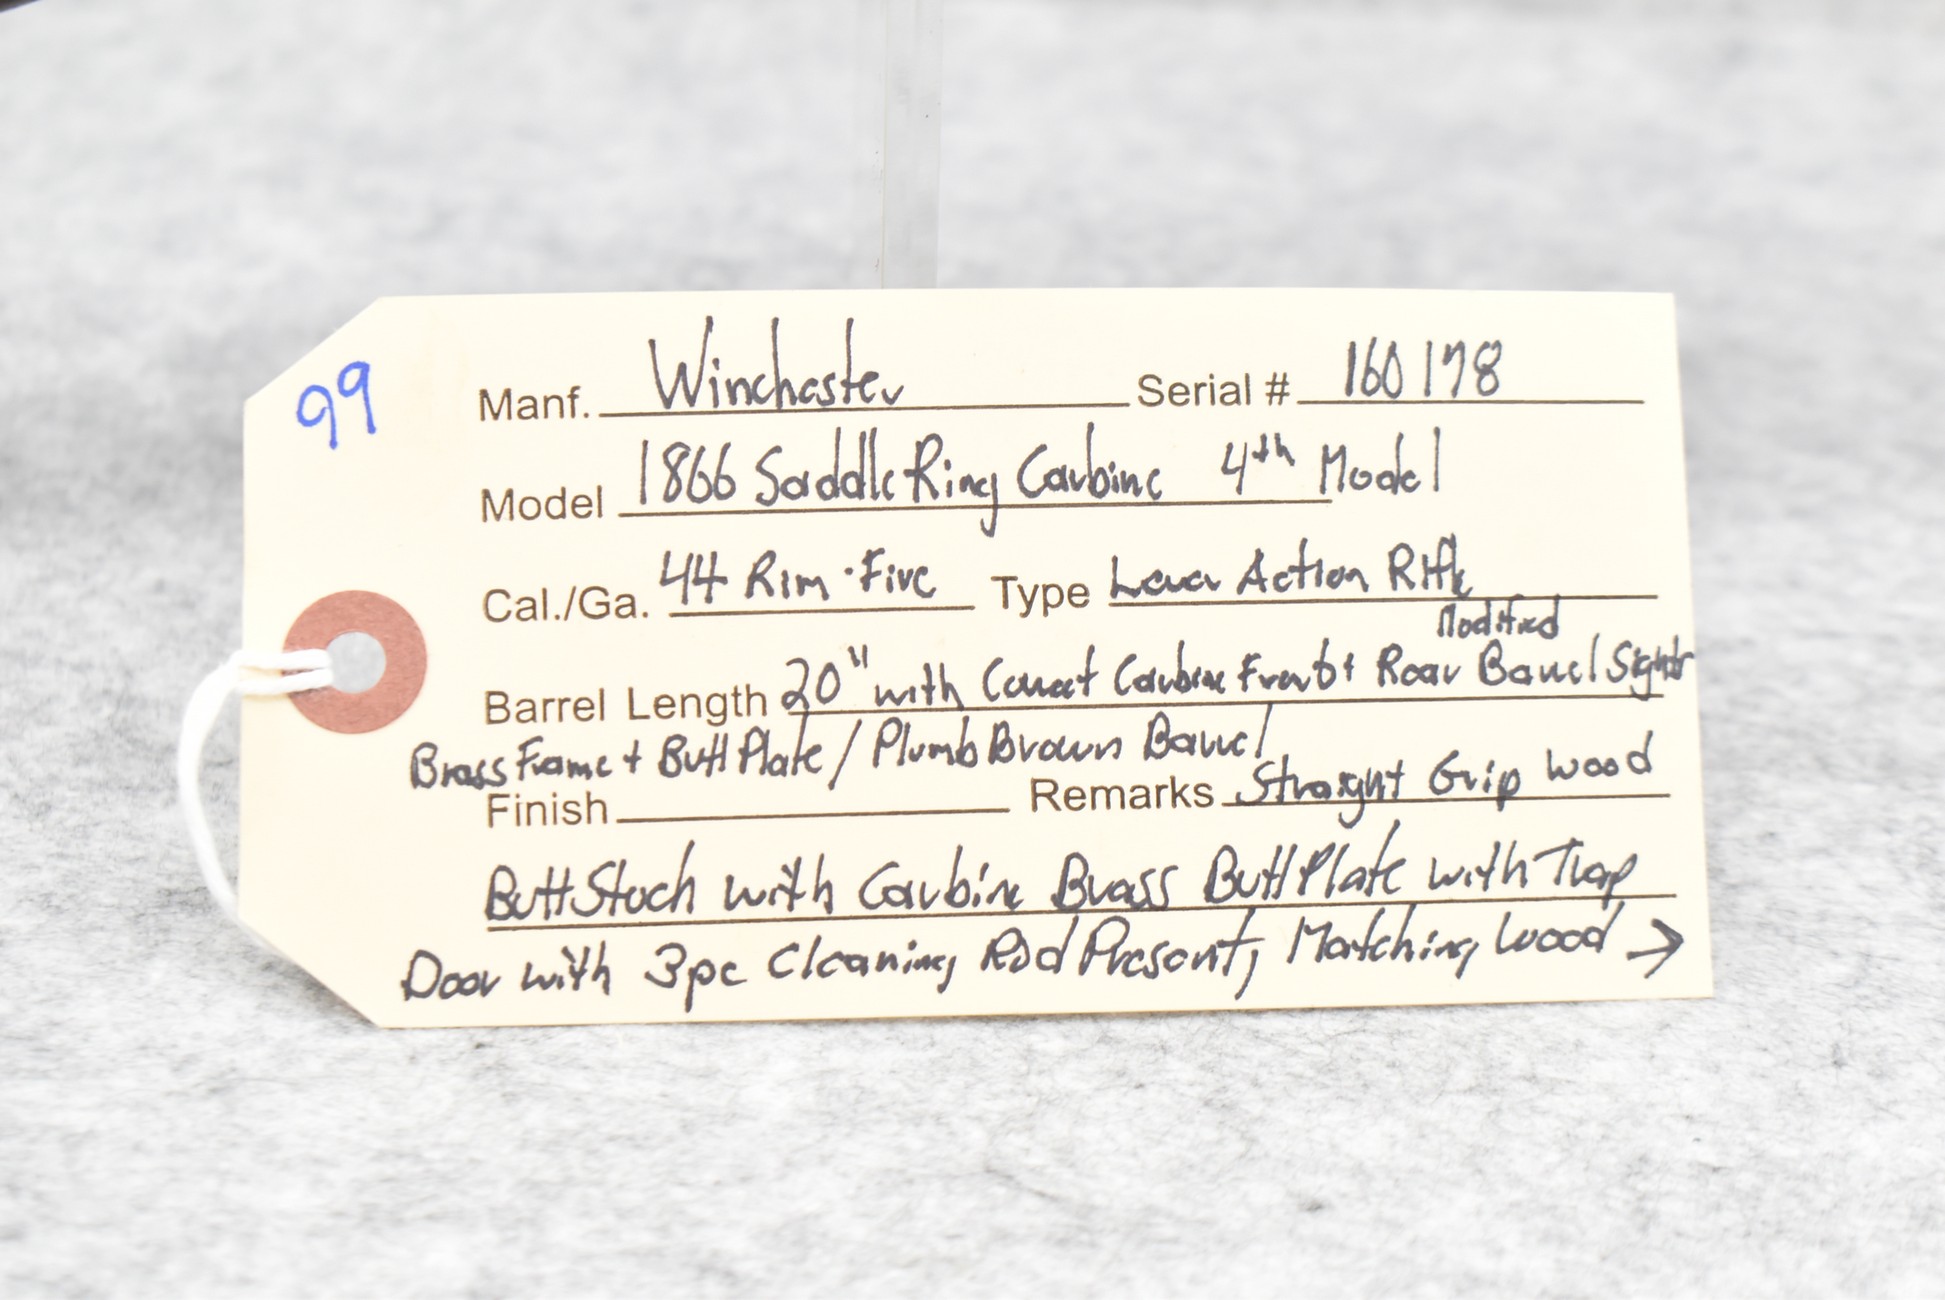 99
Manf. Winchester Serial # 160178
Model 1866 Saddle Ring Carbine 4th Model
Cal./Ga. 44 Rim-Fire Type Lever Action Rifle
Modified
Barrel Length 20" with Correct Carbine Front + Rear Barrel Sights
Brass Frame + Butt Plate / Plumb Brown Barrel
Finish Remarks Straight Grip Wood
Butt Stock with Carbine Brass Butt Plate with Trap
Door with 3pc Cleaning Rod Present, Matching Wood →